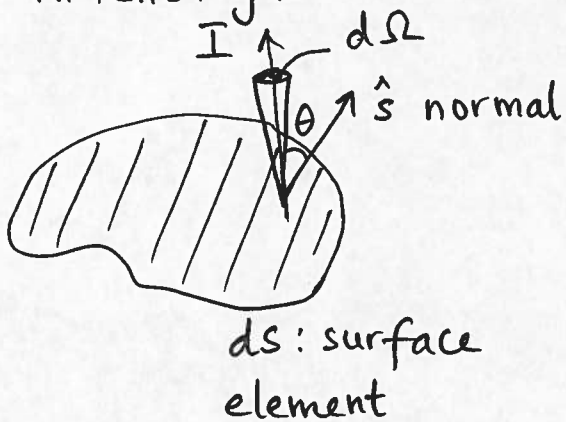 I dΩ
θ ŝ normal
ds : surface
element